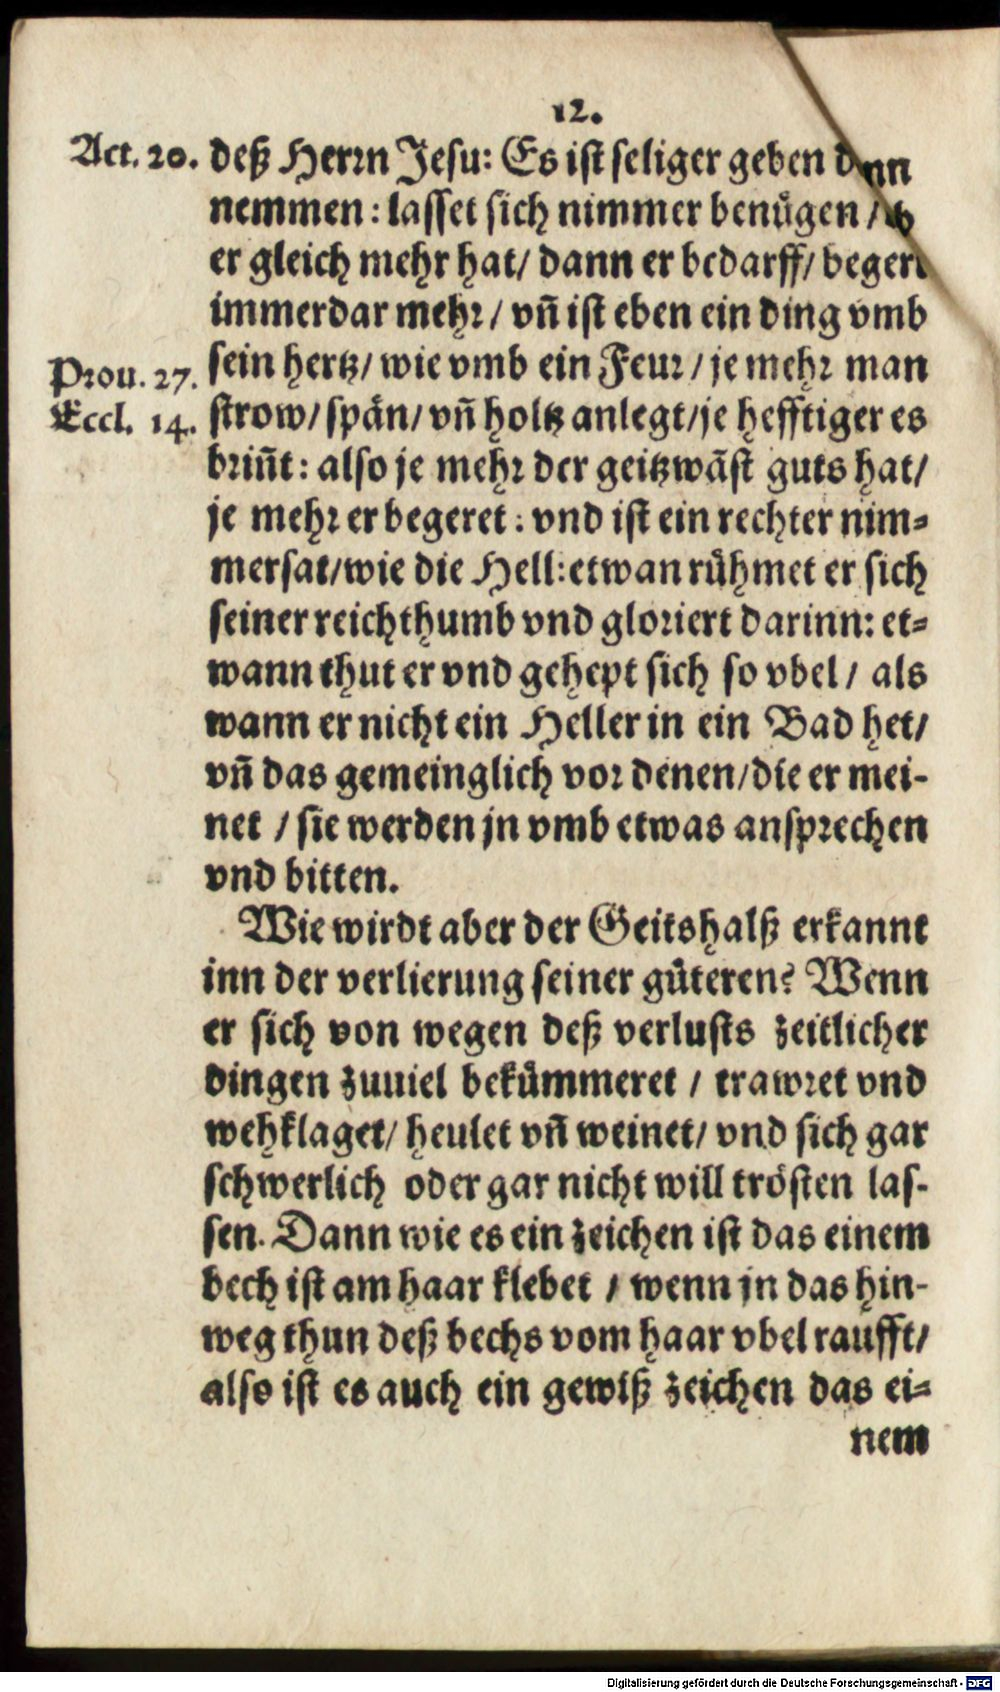 12.
Act. 20. deß Herrn Jesu: Es ist seliger geben dann
nemmen: lasset sich nimmer benuͤgen /
er gleich mehr hat/ dann er bedarff/ begert
immerdar mehr / vñ ist eben ein ding vmb
Prou. 27. sein hertz/ wie vmb ein Feur / je mehr man
Eccl. 14. strow/ spän/ vñ holtz anlegt/ je hefftiger es
briñt: also je mehr der geitzwãst guts hat/
je mehr er begeret: vnd ist ein rechter nim=
mersat/wie die Hell: etwan ruͤhmet er sich
seiner reichthumb vnd gloriert darinn: et=
wann thut er vnd gehept sich so vbel / als
wann er nicht ein Heller in ein Bad het/
vñ das gemeinglich vor denen/die er mei-
net / sie werden jn vmb etwas ansprechen
vnd bitten.
Wie wirdt aber der Geitshalß erkannt
inn der verlierung seiner guͤteren? Wenn
er sich von wegen deß verlusts zeitlicher
dingen zuuiel bekuͤmmeret / trawret vnd
wehklaget/ heulet vñ weinet/ vnd sich gar
schwerlich oder gar nicht will trösten las-
sen. Dann wie es ein zeichen ist das einem
bech ist am haar klebet / wenn jn das hin-
weg thun deß bechs vom haar vbel raufft/
also ist es auch ein gewiß zeichen das ei=
nem
Digitalisierung gefördert durch die Deutsche Forschungsgemeinschaft - DFG